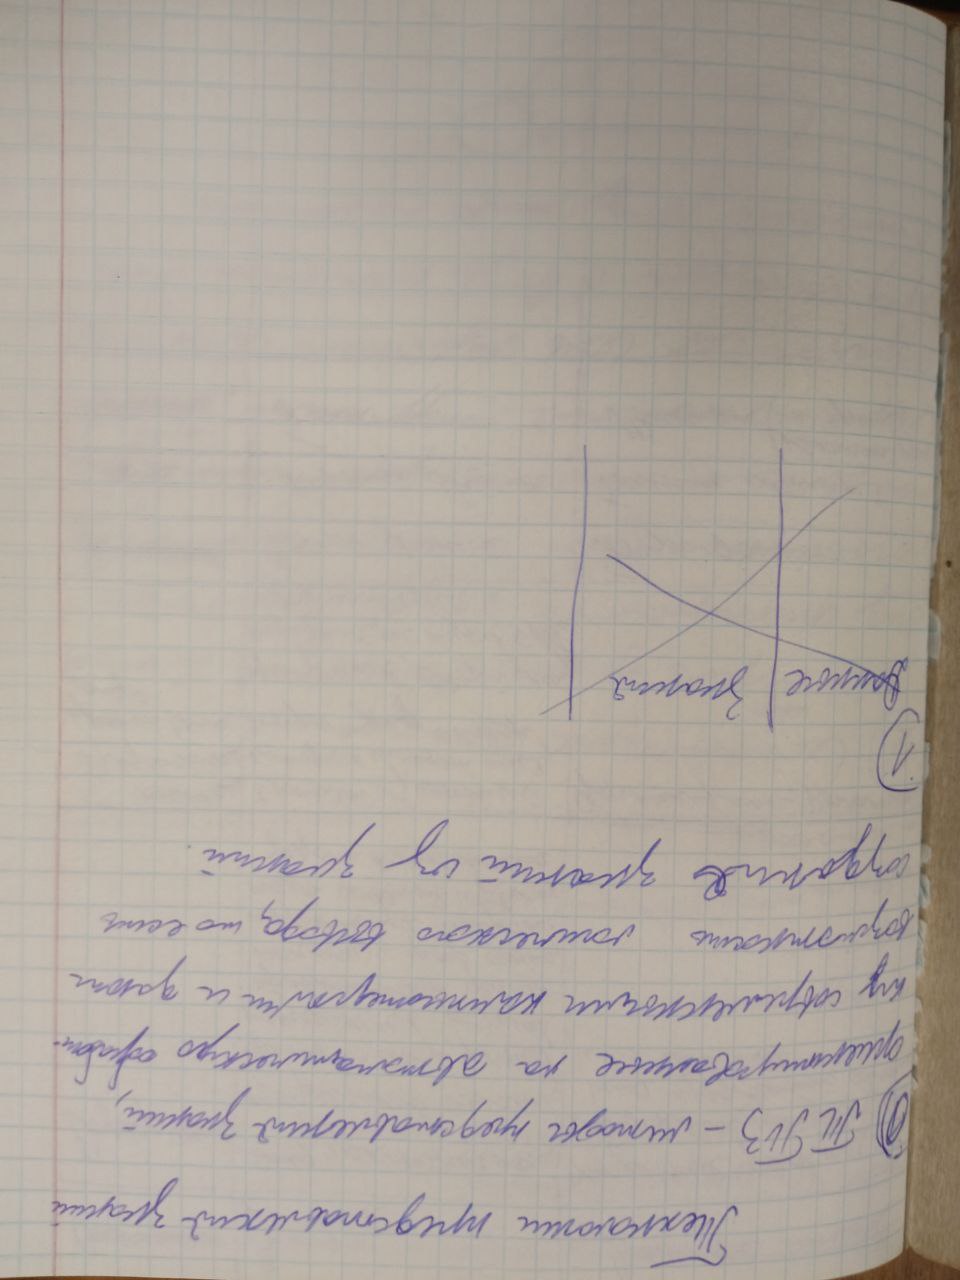 Технологии представления знаний
0) ТПЗ – методы представления знаний,
ориентированные на автоматическую обработ-
ку современными компьютерами и дают
возможность логического вывода, то есть
создание знаний из знаний.
1)
Данные Знания